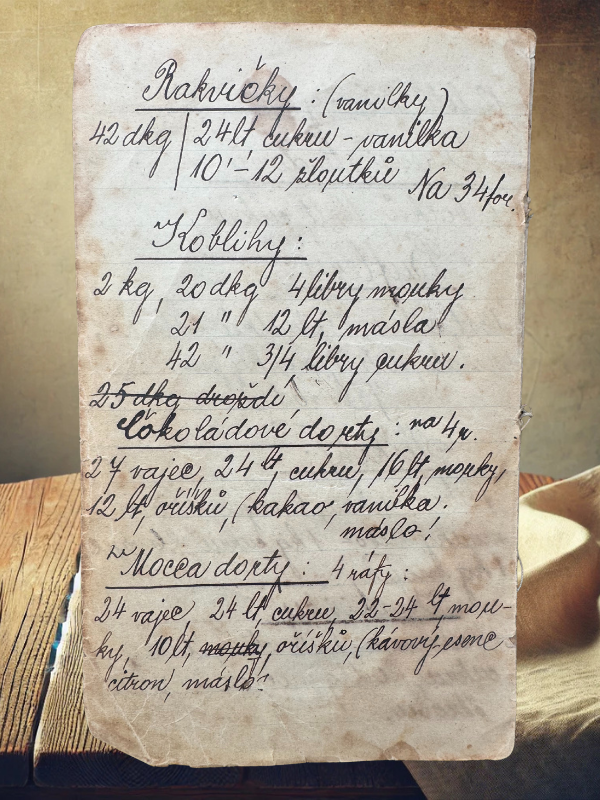 Rakvičky : (vanilky)
42 dkg | 24 lt cukru - vanilka
10 - 12 žloutků
Na 34 for.
Koblihy :
2 kg, 20 dkg 4 libry mouky
21 " 12 lt, másla
42 " 3/4 libry cukru.
25 dkg droždí
Čokoládové dorty : na 4 r.
27 vajec, 24 lt, cukru, 16 lt, mouky,
12 lt, oříšků, (kakao, vanilka.
máslo!
Mocca dorty : 4 ráfy :
24 vajec, 24 lt, cukru, 22-24 lt mou-
ky, 10 lt, mouky, oříšků, (kávový esenc
citron, máslo!